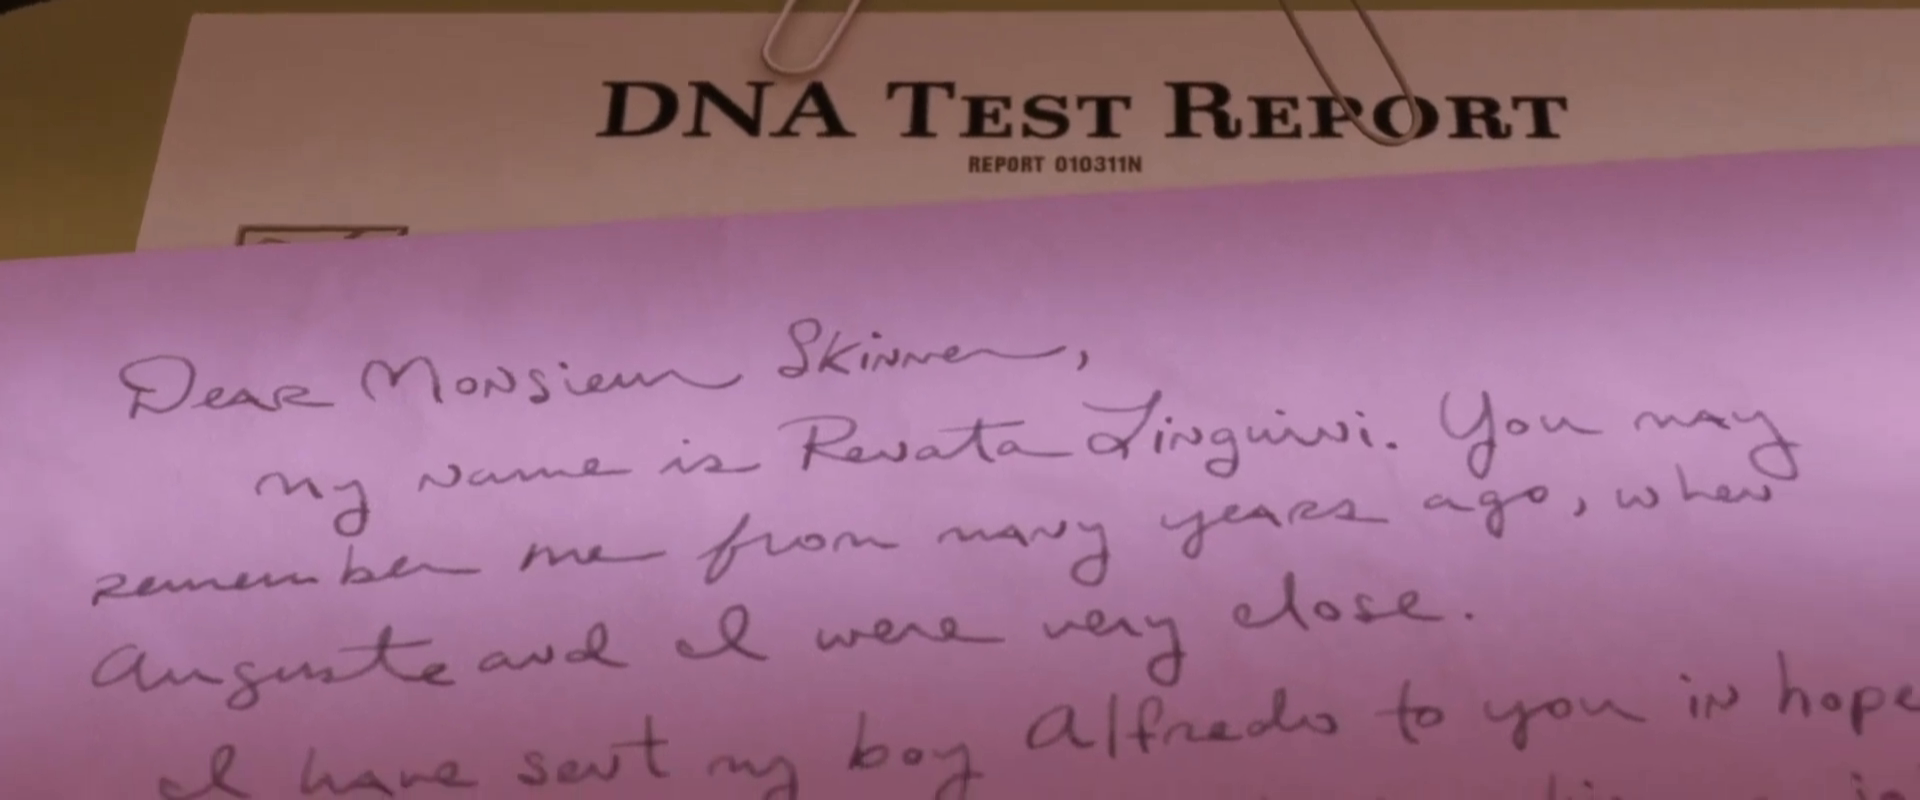 DNA TEST REPORT
REPORT 010311N
Dear Monsieur Skinner,
My name is Renata Linguini. You may
remember me from many years ago, when
Auguste and I were very close.
I have sent my boy Alfredo to you in hope